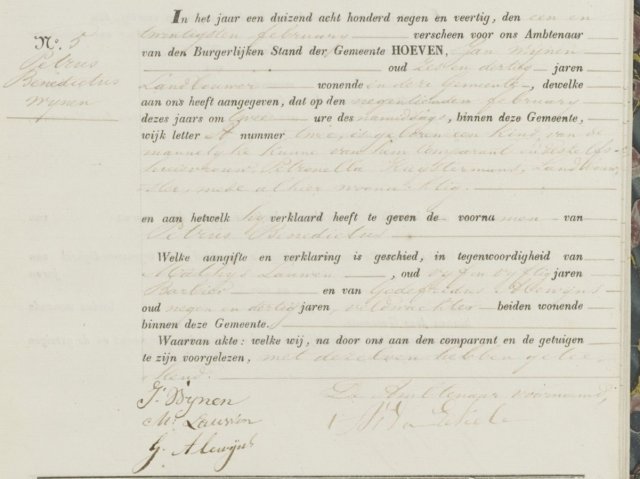 N.º 5
Petrus
Benedictus
Wijnen
In het jaar een duizend acht honderd negen en veertig, den een en
twintigsten februarij verscheen voor ons Ambtenaar
van den Burgerlijken Stand der Gemeente HOEVEN, Jan Wijnen
oud zes en dertig jaren
Landbouwer wonende in deze Gemeente, dewelke
aan ons heeft aangegeven, dat op den negentienden februarij
dezes jaars om twee ure des namiddags, binnen deze Gemeente,
wijk letter A nummer twee, is geboren een kind, van de
mannelijke kunne van hem Comparant en deszelfs
huisvrouw, Petronella Landbouw
mede alhier woonachtig
en aan hetwelk hij verklaard heeft te geven de voornamen van
Petrus Benedictus
Welke aangifte en verklaring is geschied, in tegenwoordigheid van
Mathijs Lauwen, oud vijf en vijftig jaren
Barbier en van Godefridus Alewijns
oud negen en dertig jaren, veldwachter beiden wonende
binnen deze Gemeente.
Waarvan akte: welke wij, na door ons aan den comparant en de getuigen
te zijn voorgelezen, met dezelven hebben getee
kend.
J. Wijnen
De Ambtenaar voornoemd,
M. Lauwen
G. Alewijns